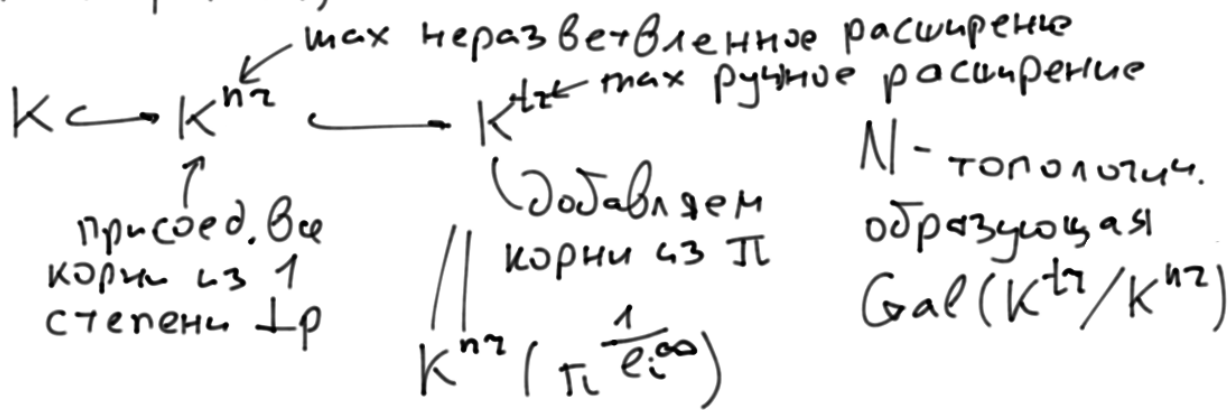 max неразветвленное расширение
max ручное расширение
K ↪ K^{nr} ↪ K^{tr}
присоед. все
корни из 1
степени ⊥ p
добавляем
корни из π
K^{nr} (π^{1/ℓ_i^∞})
N - топологич.
образующая
Gal(K^{tr}/K^{nr})